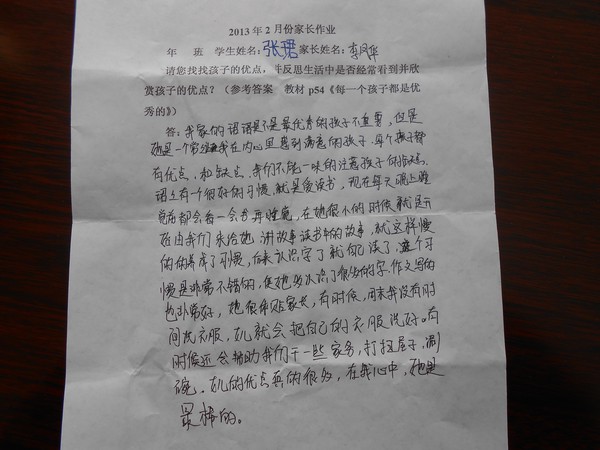 2013年2月份家长作业
年 班 学生姓名:张珺家长姓名:李凤华
请您找找孩子的优点,并反思生活中是否经常看到并欣
赏孩子的优点?(参考答案 教材p54《每一个孩子都是优
秀的》)
答:我家的珺珺是不是最优秀的孩子不重要,但是
她是一个常让我在内心里感到满意的孩子.每个孩子都
有优点,和缺点.我们不能一味的注意孩子的缺点.
珺上有一个很好的习惯,就是爱读书,现在每天晚上睡
觉前都会看一会书再睡觉,在她很小的时候就是开
始由我们来给她讲故事读书中的故事,就这样慢
的的养成了习惯,后来认识字了就自己读了,这个习
慣是非常不错的,使她多次识了很多的字.作文写的
也非常好,她很体贴家长,有时候,周末我没有时
间洗衣服,女儿就会把自己的衣服洗好。有
时候还会帮助我们干一些家务,打扫屋子,涮
碗。女儿的优点真的很多,在我心中,她是
最棒的。